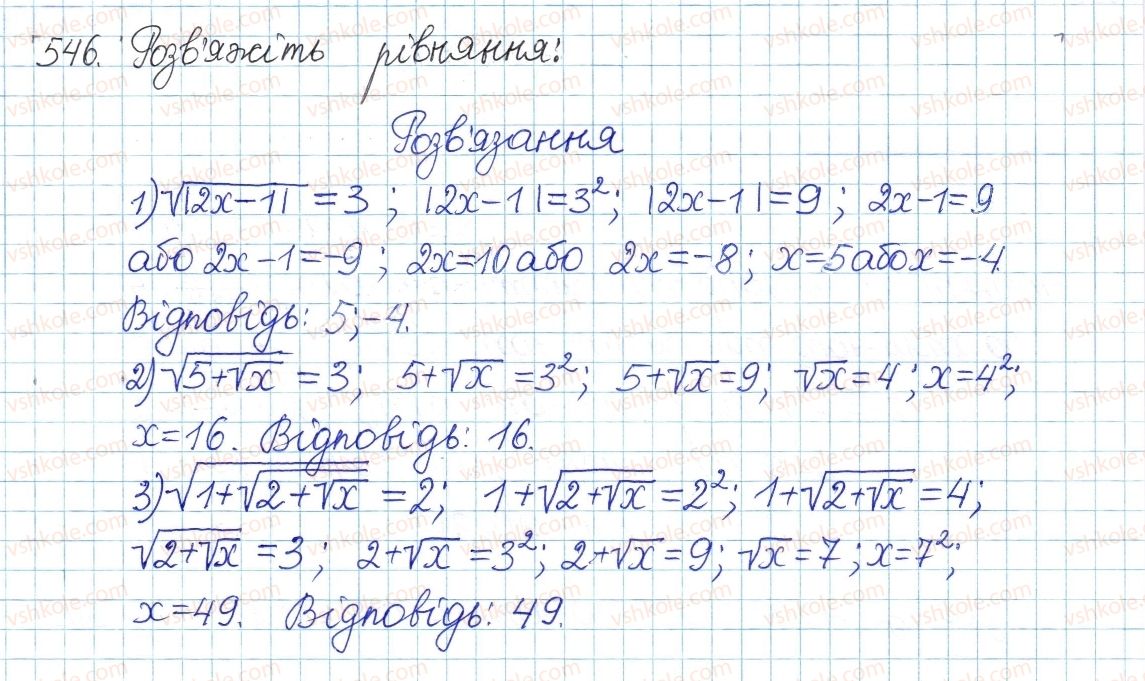 546. Розв'яжіть рівняння:
Розв'язання
1) √|2x-1| = 3 ; |2x-1| = 3²; |2x-1| = 9 ; 2x-1=9
або 2x-1=-9 ; 2x=10 або 2x=-8 ; x=5 або x=-4.
Відповідь: 5;-4.
2) √(5+√x) = 3; 5+√x = 3²; 5+√x = 9; √x = 4 ; x=4²;
x=16. Відповідь: 16.
3) √(1+√(2+√x)) = 2; 1+√(2+√x) = 2²; 1+√(2+√x) = 4;
√(2+√x) = 3 ; 2+√x = 3²; 2+√x = 9; √x = 7 ; x=7²;
x=49. Відповідь: 49.